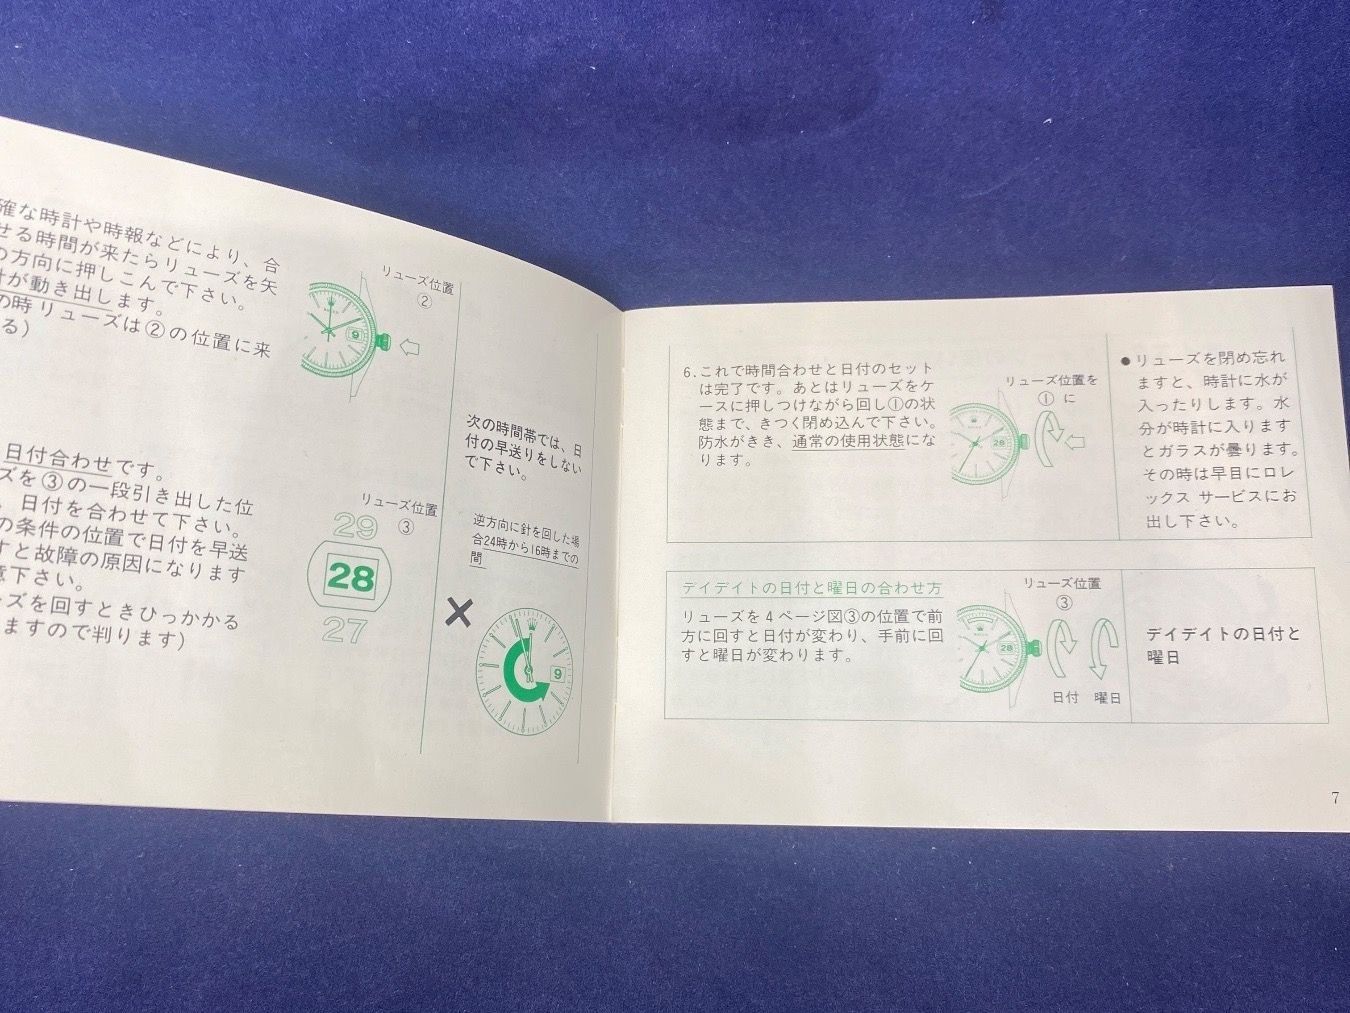 確な時計や時報などにより、合
せる時間が来たらリューズを矢
の方向に押しこんで下さい。
針が動き出します。
の時リューズは②の位置に来
る）
リューズ位置
②
9
日付合わせです。
ズを③の一段引き出した位
、日付を合わせて下さい。
の条件の位置で日付を早送
すと故障の原因になります
意下さい。
ーズを回すときひっかかる
ますので判ります）
リューズ位置
③
29
28
27
次の時間帯では、日
付の早送りをしない
で下さい。
逆方向に針を回した場
合24時から16時までの
間
×
9
6.これで時間合わせと日付のセット
は完了です。あとはリューズをケ
ースに押しつけながら回し①の状
態まで、きつく閉め込んで下さい。
防水がきき、通常の使用状態にな
ります。
リューズ位置を
①に
28
●リューズを閉め忘れ
ますと、時計に水が
入ったりします。水
分が時計に入ります
とガラスが曇ります。
その時は早目にロレ
ックス サービスにお
出し下さい。
デイデイトの日付と曜日の合わせ方
リューズを4ページ図③の位置で前
方に回すと日付が変わり、手前に回
すと曜日が変わります。
リューズ位置
③
28
日付 曜日
デイデイトの日付と
曜日
7